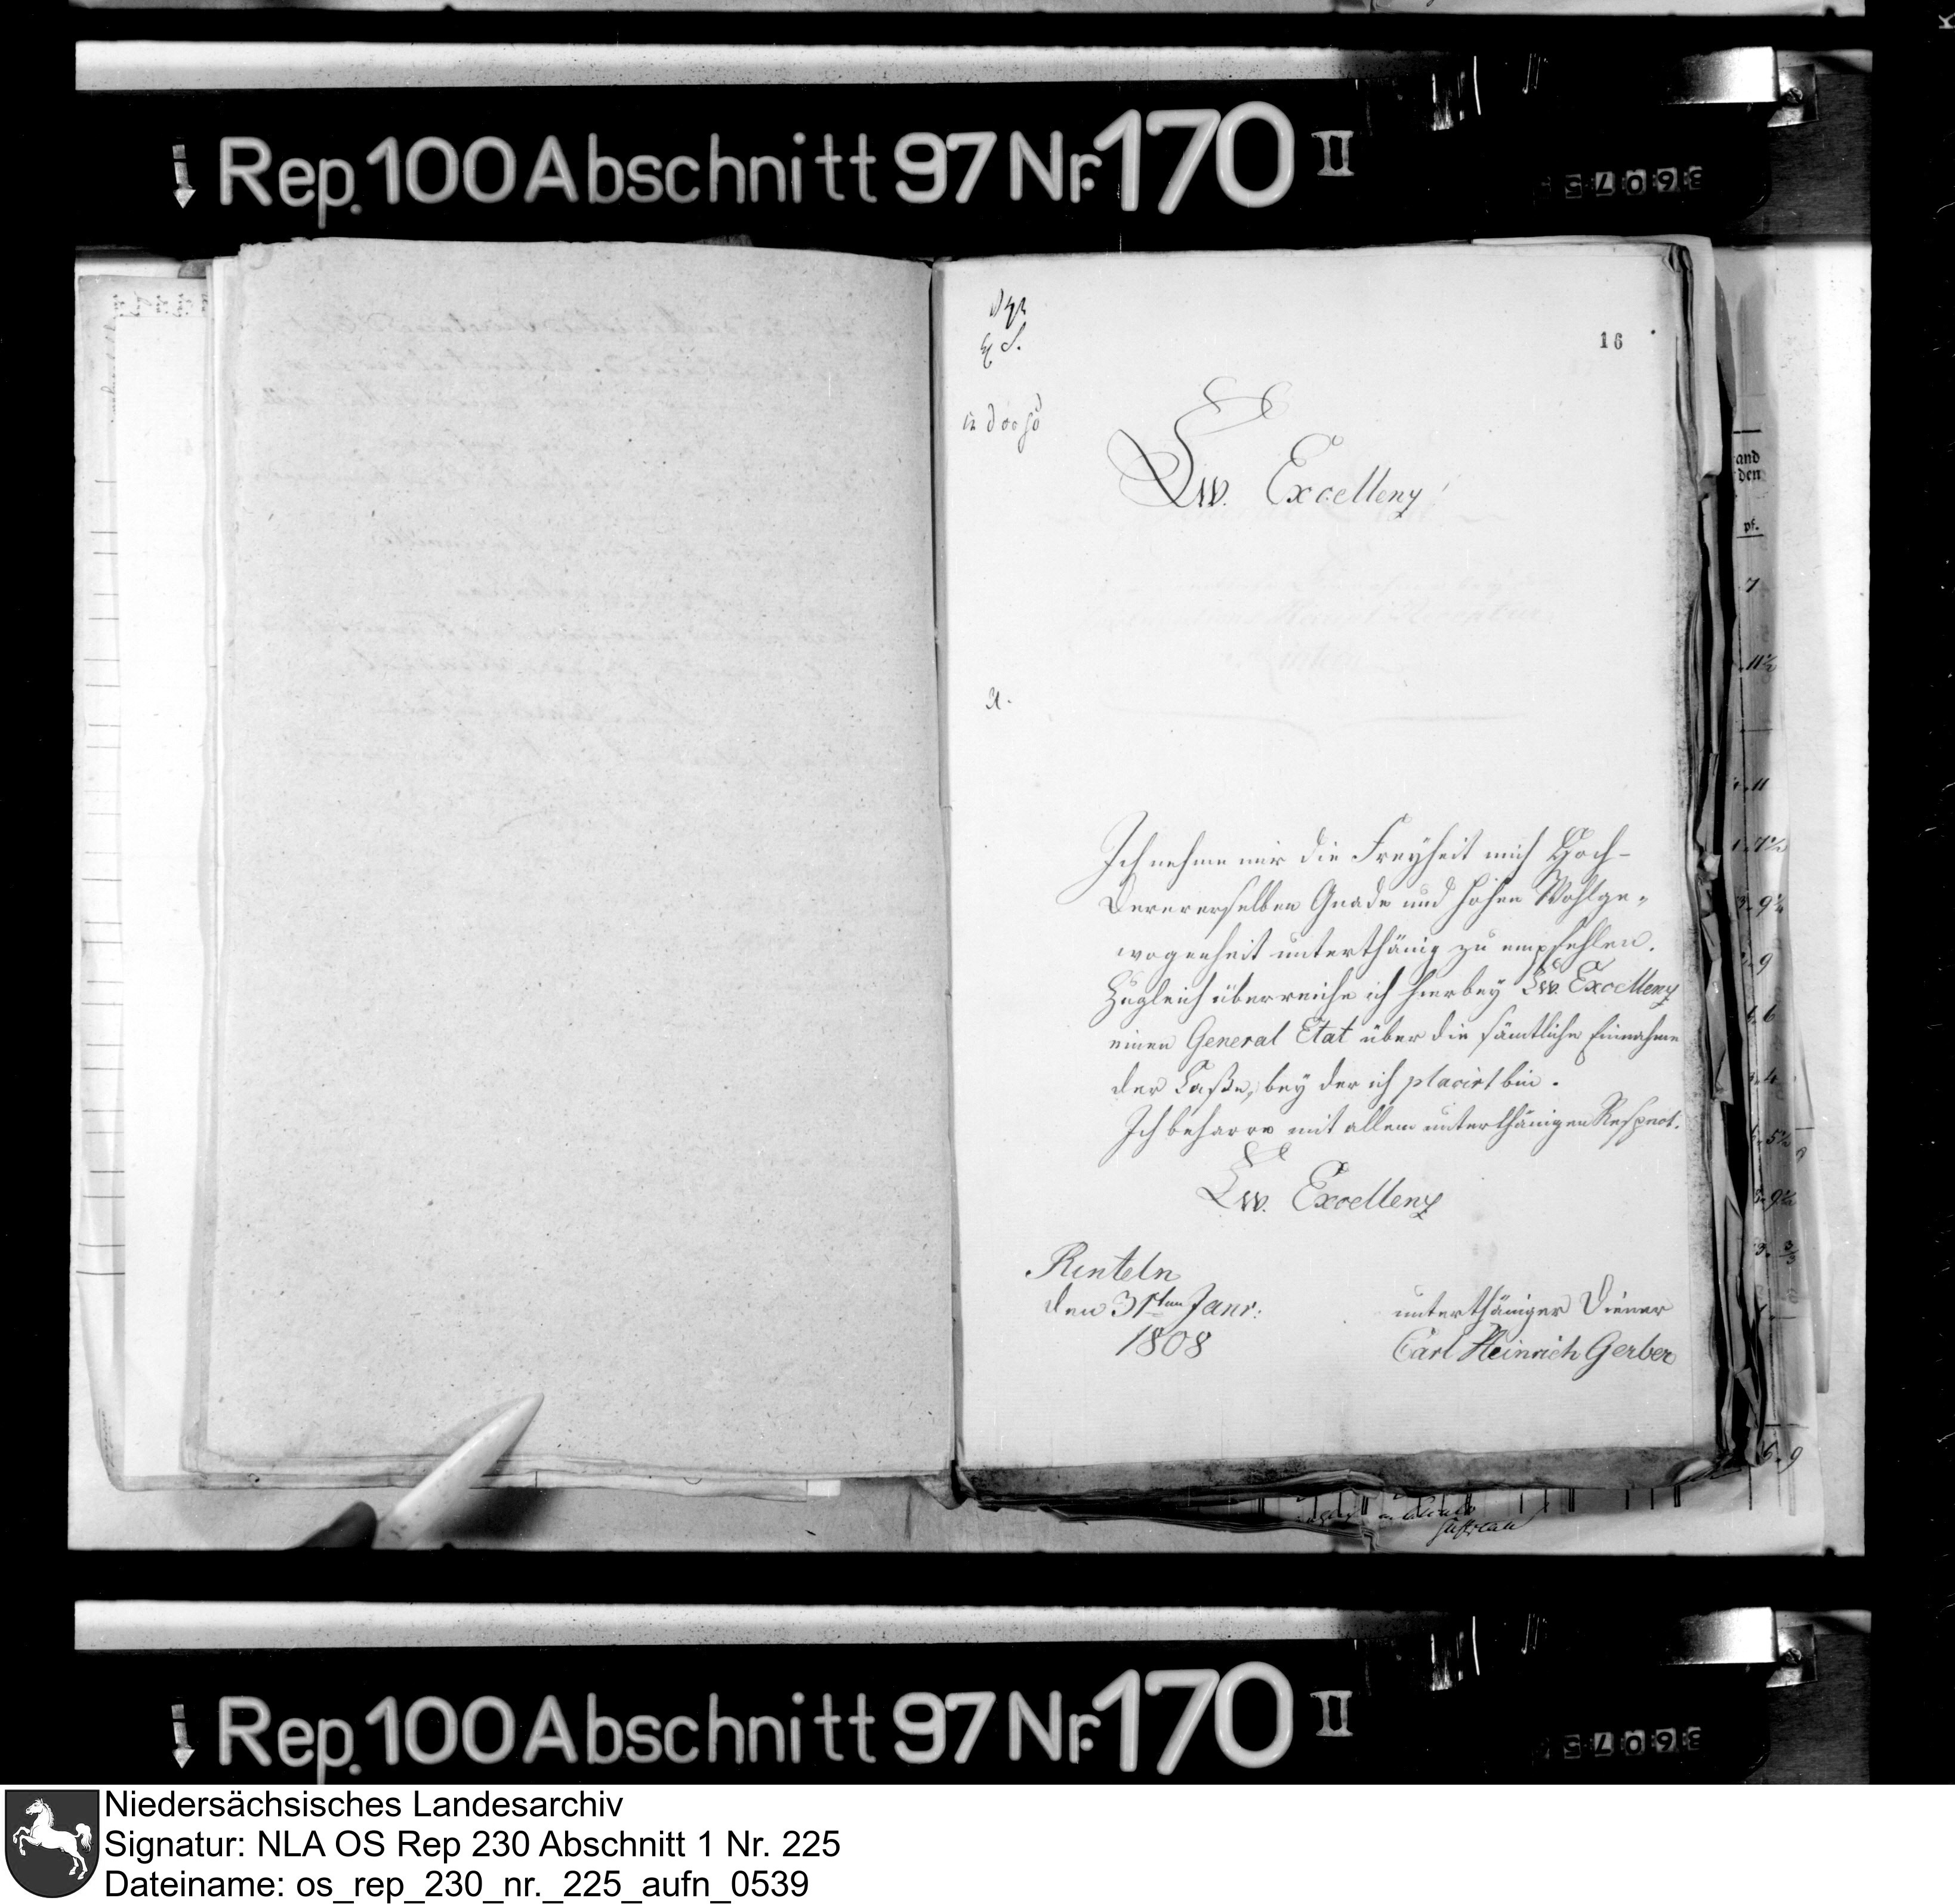 Rep. 100 Abschnitt 97 Nr. 170 II
16
Ew. Excellenz!
Ich nehme mir die Freyheit mich Hoch-
Derenerselben Gnade und hohen Wohlge-
wogenheit unterthänig zu empfehlen.
Zugleich überreiche ich hierbey Ew. Excellenz
einen General Etat über die sämtliche Einnahme
der Caße, bey der ich placirt bin.
Ich beharre mit allem unterthänigen Respect.
Ew. Excellenz
Rinteln
den 31ten Janr:
1808
unterthäniger Diener
Carl Heinrich Gerber
Rep. 100 Abschnitt 97 Nr. 170 II
Niedersächsisches Landesarchiv
Signatur: NLA OS Rep 230 Abschnitt 1 Nr. 225
Dateiname: os_rep_230_nr._225_aufn_0539